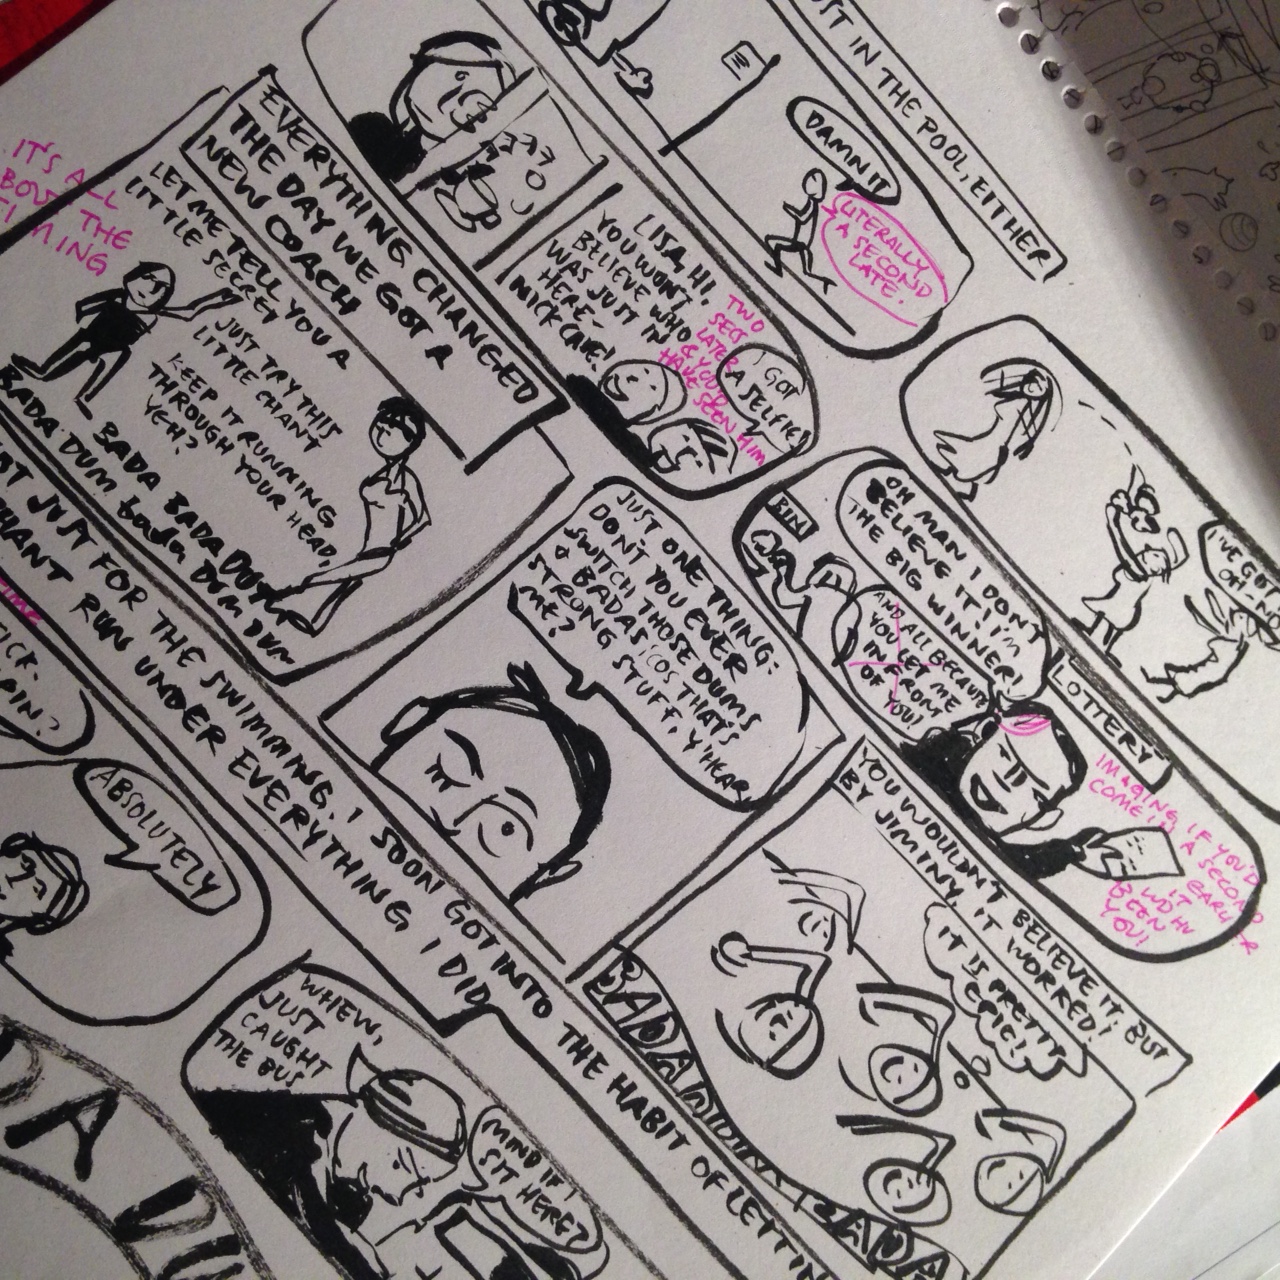 IT'S ALL
THE
EVERYTHING CHANGED
THE DAY WE GOT A
NEW COACH
LET ME TELL YOU A
LITTLE SECRET
JUST TRY THIS
LITTLE CHANT
KEEP IT RUNNING
THROUGH YOUR HEAD,
YEH?
BADA BADA BADA DUM
BADA DUM bada DUM DUM
JUST ONE THING:
DON'T YOU EVER
SWITCH THOSE DUMS
& BADAS COS THAT'S
STRONG STUFF, Y'HEAR
ME?
YOU WOULDN'T BELIEVE IT, BUT
BY JIMINY, IT WORKED!
IT IS PRETTY
EPIC!
BADADUM BADA
JUST FOR THE SWIMMING. I SOON GOT INTO THE HABIT OF
CHANT RUN UNDER EVERYTHING I DID
ABSOLUTELY
WHEW,
JUST
CAUGHT
THE BUS
MIND IF I
SIT HERE?
IN THE POOL, EITHER
DAMNIT
LITERALLY
A SECOND
LATE.
LISA, HI,
YOU WON'T
BELIEVE WHO
WAS JUST IN
HERE-
NICK CAVE!
TWO
SECS
LATER
& YOU'D
HAVE SEEN HIM
I GOT
A SELFIE!
OH MAN I DON'T
BELIEVE IT I'M
THE BIG WINNER!
AND ALL BECAUSE
YOU LET ME
IN FRONT
OF YOU!
LOTTERY
IMAGINE IF YOU'D
COME IN A SECOND
EARLIER
IT
BEEN
YOU!
I'VE GOT
OH-NO